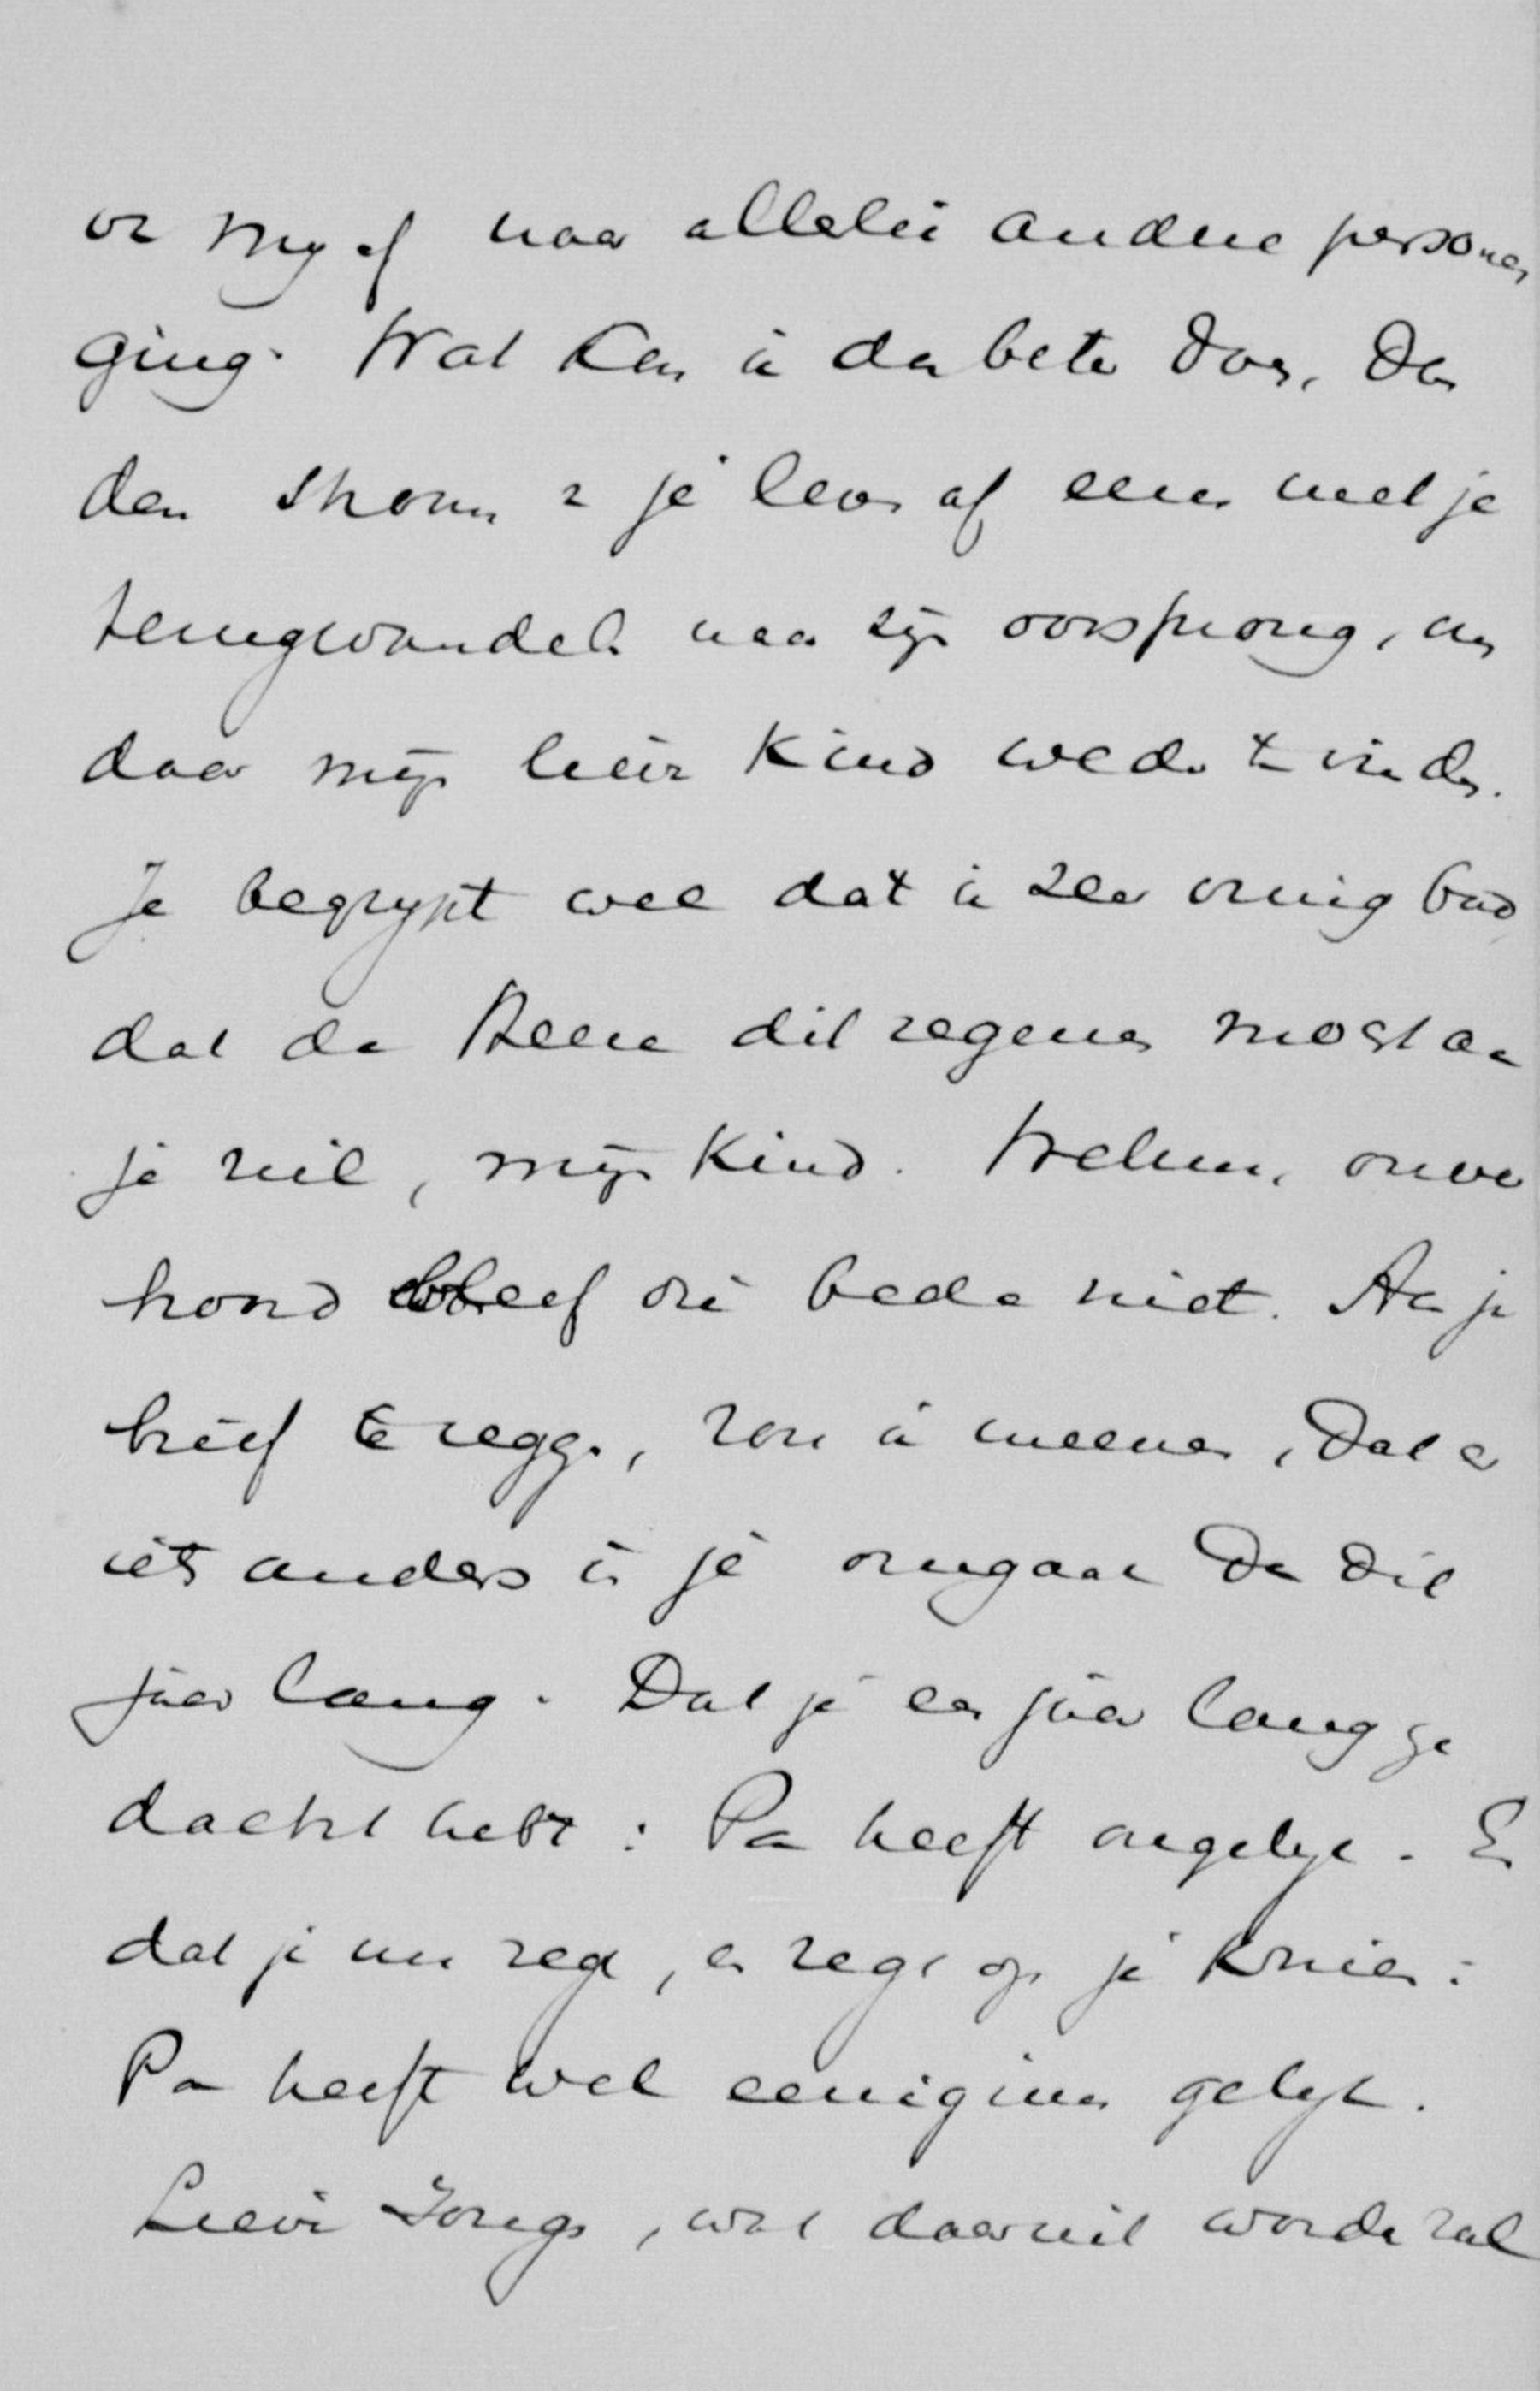 van mij af naar allelei andere personen
ging. Wat kan ik dan beter doen, dan
den stroom van je leven af eens met je
terugwandelen naar zijn oorsprong, en
daar mijn lieve kind weder te vinden.
Je begrijpt wel dat ik zeer innig bad
dat de Heere dit zegenen mocht aan
je ziel, mijn kind. Welnu, onver
hoord bleef die bede niet. Aan je
brief te zeggen, zou ik meenen, dat er
iets anders in je omgaat dan dit
jaar lang. Dat je een jaar lang ge
dacht hebt: Pa heeft ongelijk. En
dat je nu zegt, en zegt op je knieen:
Pa heeft wel eenigzins gelijk.
Lieve Jongen, wat daaruit worden zal